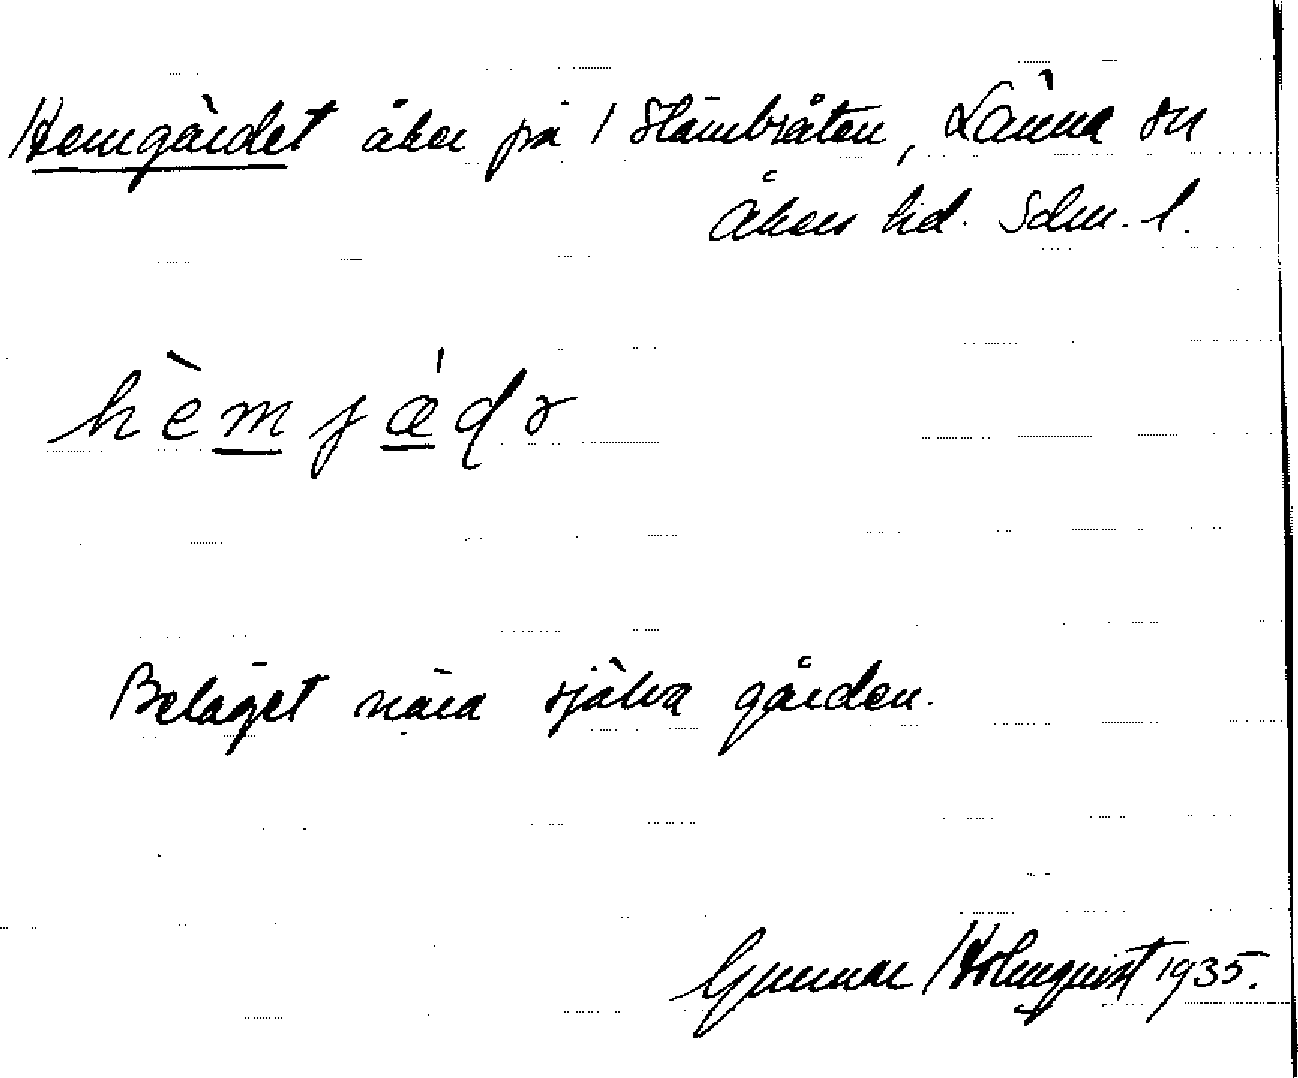 Hemgärdet åker på 1 Stämbråten, Länna sn
Åkers hd. Sdm. l.
hèmjæ̀dɂ
Beläget nära själva gården.
Gunnar Holmquist 1935.